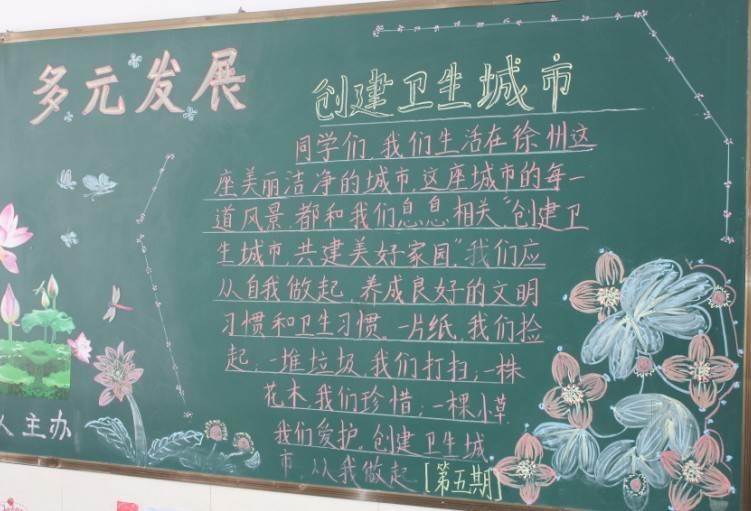 多元发展
创建卫生城市
同学们,我们生活在徐州这
座美丽洁净的城市,这座城市的每一
道风景,都和我们息息相关,"创建卫
生城市,共建美好家园"我们应
从自我做起,养成良好的文明
习惯和卫生习惯,一片纸,我们捡
起;一堆垃圾,我们打扫;一株
花木,我们珍惜;一棵小草
我们爱护,创建卫生城
市,从我做起
[第五期]
人主办